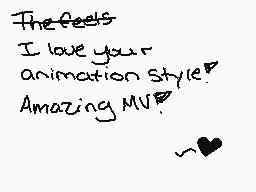 The feels
I love your
animation style!
Amazing MV!
~♥